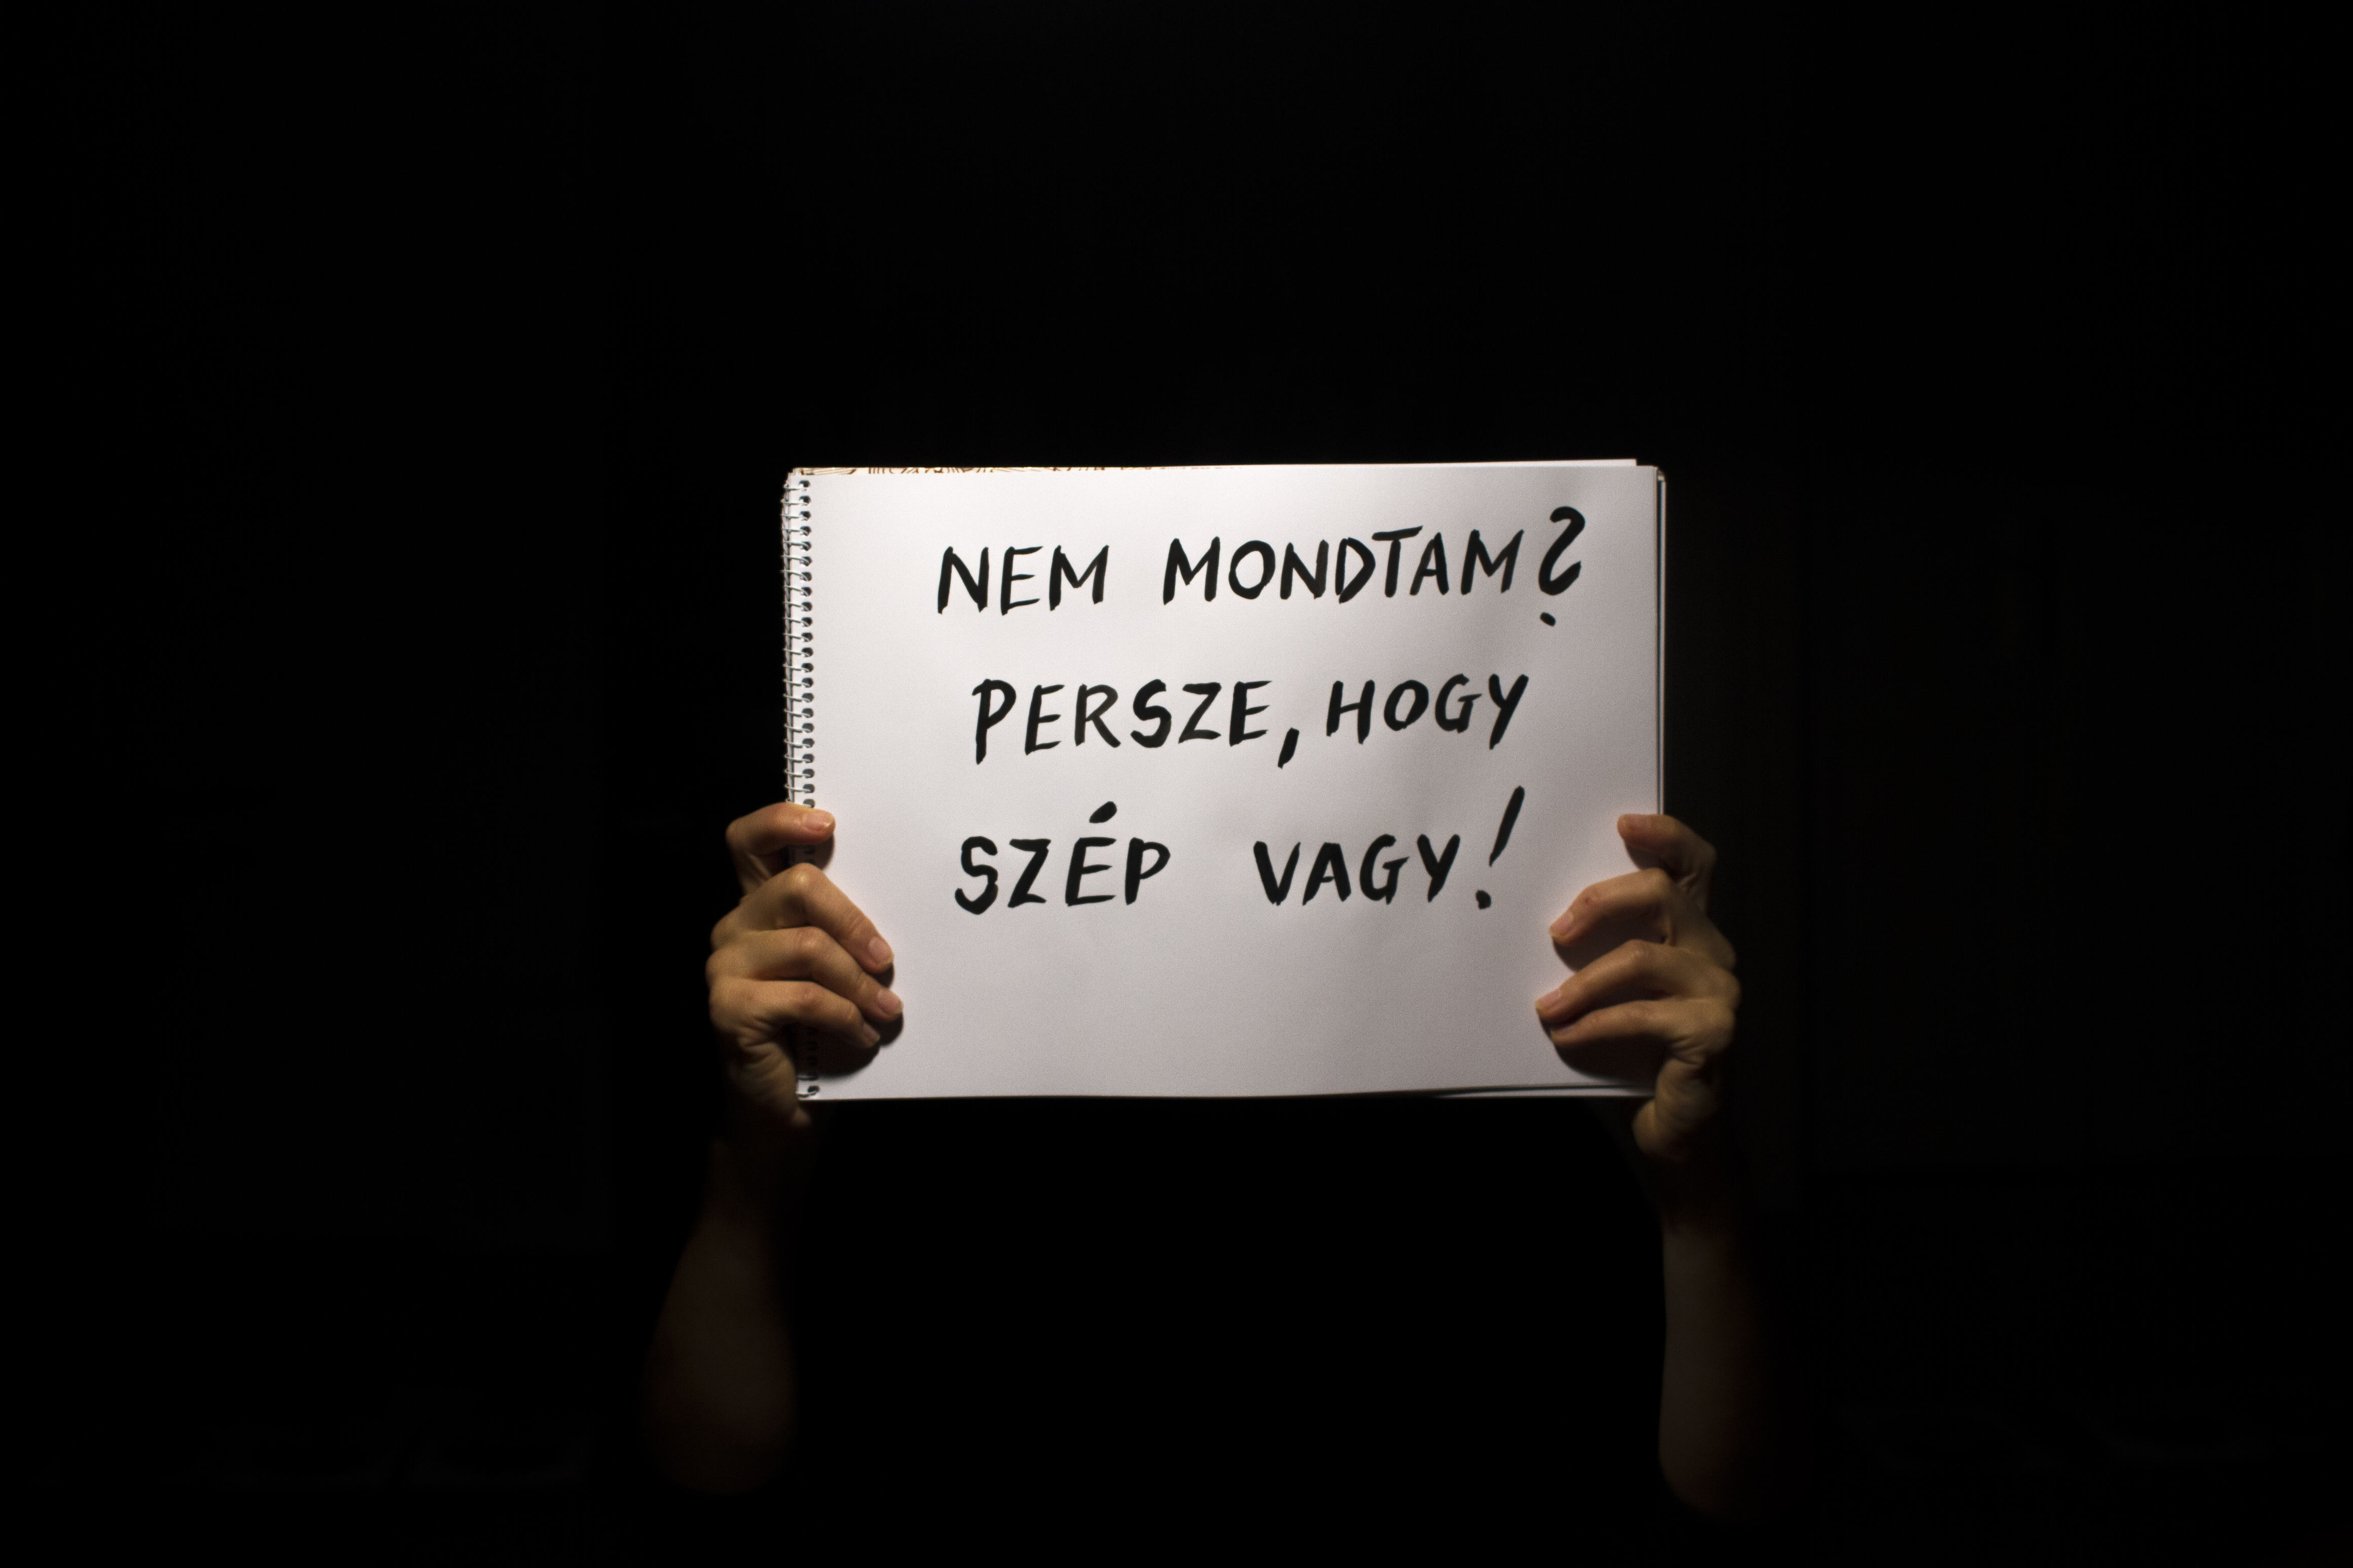 NEM MONDTAM?
PERSZE, HOGY
SZÉP VAGY!